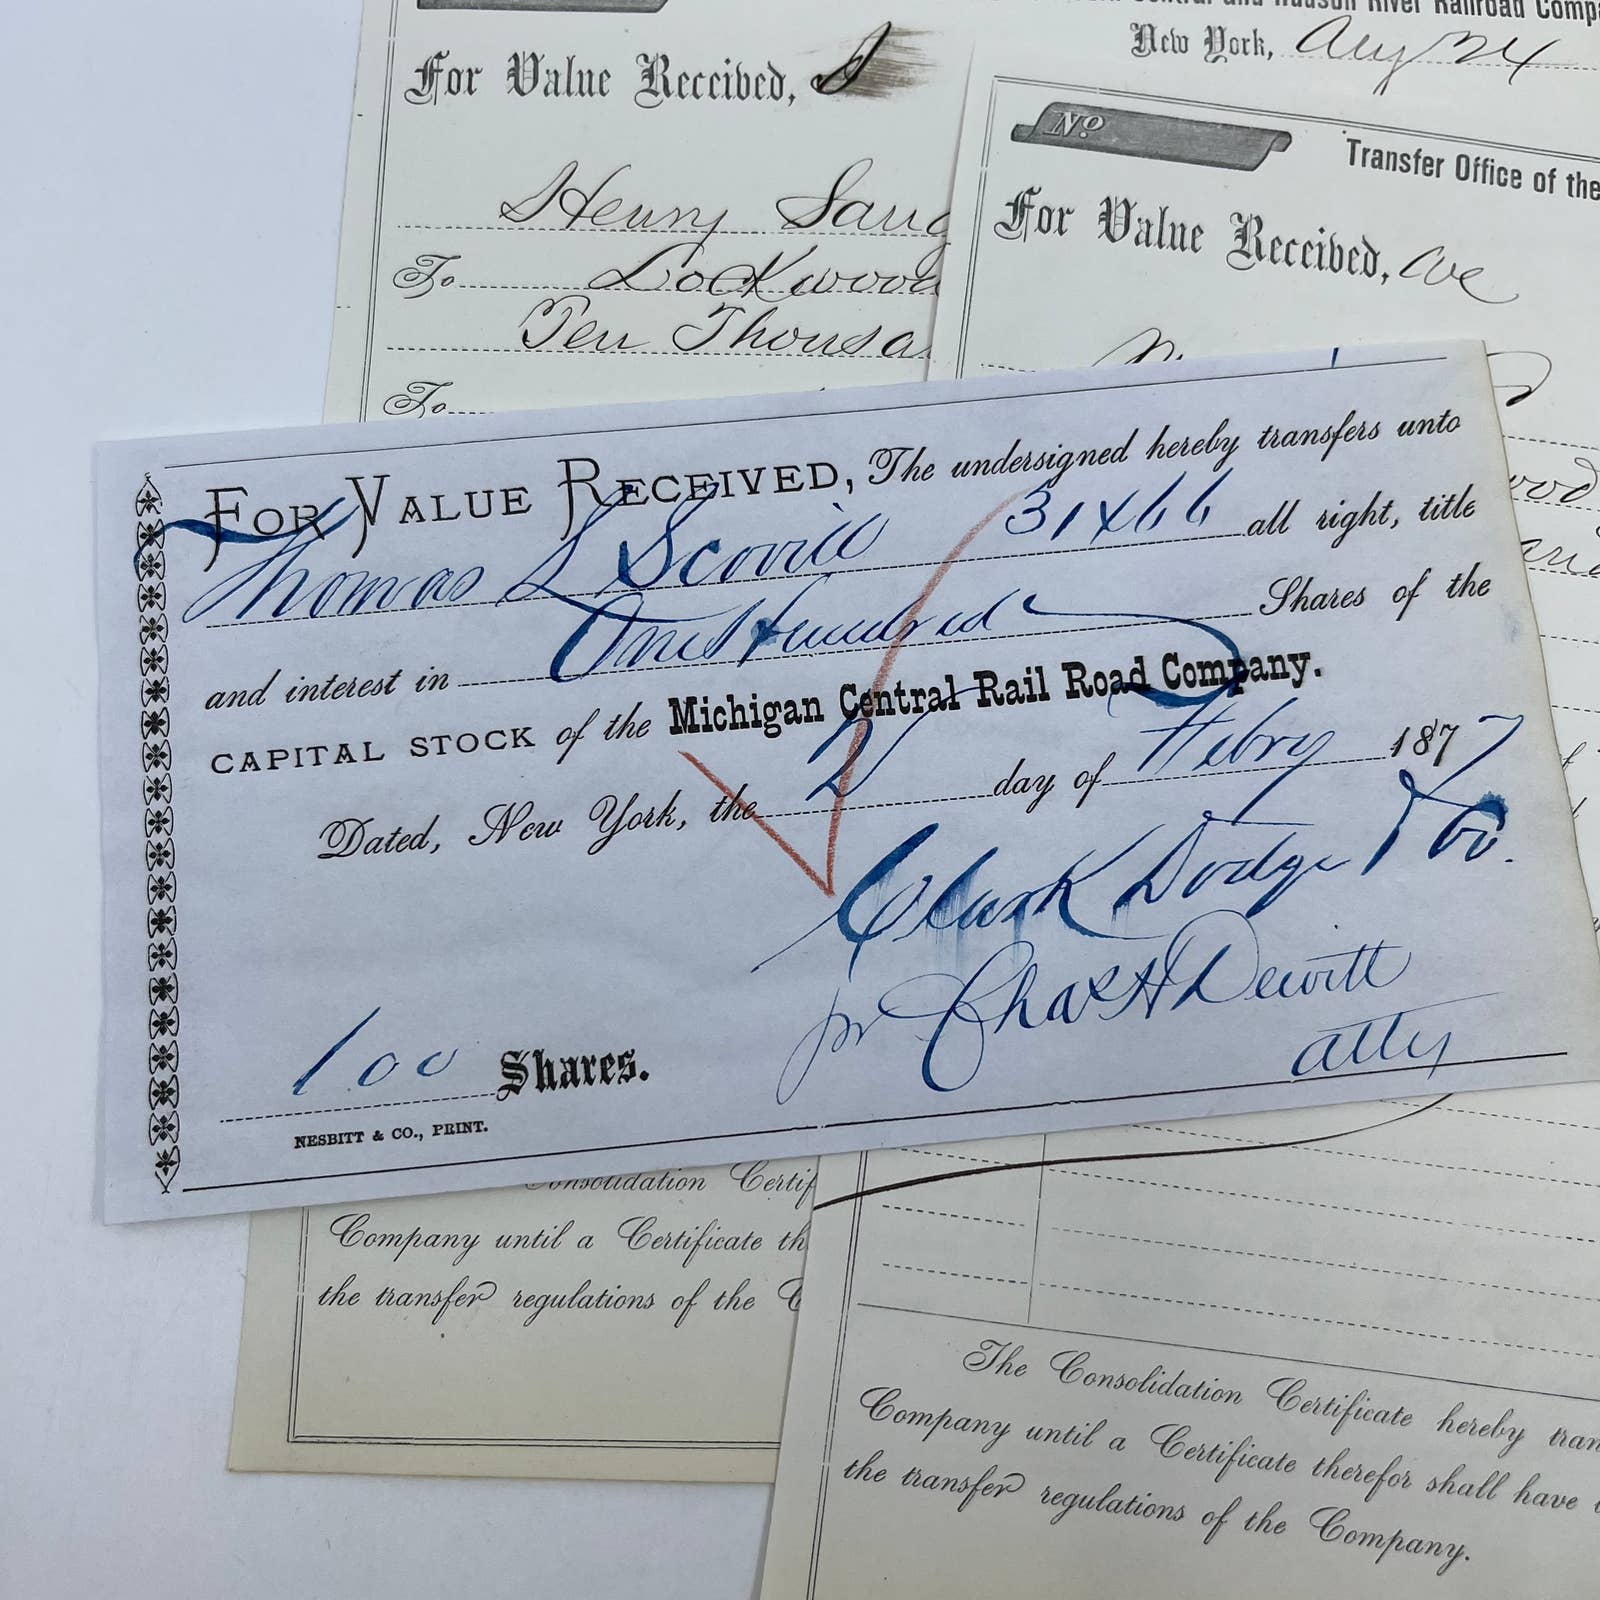 Central and Hudson River Railroad Comp
New York, Aug 24
For Value Received, I
Henry
To Lockwood
Ten Thousa
To
No
Transfer Office of the
For Value Received, we
FOR VALUE RECEIVED, The undersigned hereby transfers unto
Thomas L Scovill 31466 all right, title
and interest in One Hundred Shares of the
CAPITAL STOCK of the Michigan Central Rail Road Company.
Dated, New York, the 2 day of Febry 1877
Clark Dodge & Co.
pr Chas H Dewitt
atty
100 Shares.
NESBITT & CO., PRINT.
Consolidation Certif
Company until a Certificate th
the transfer regulations of the C
The Consolidation Certificate hereby tran
Company until a Certificate therefor shall have
the transfer regulations of the Company.